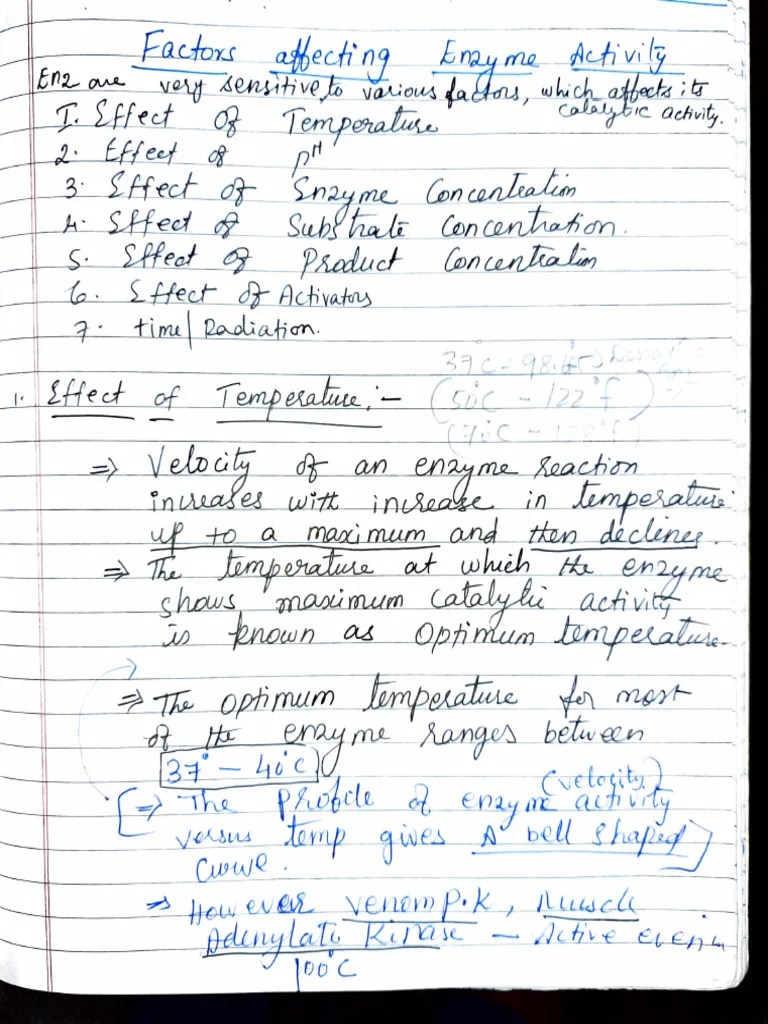 Factors affecting Enzyme Activity
Enz are very sensitive to various factors, which affects its
catalytic activity.
1. Effect of Temperature
2. Effect of pH
3. Effect of Enzyme Concentration
4. Effect of Substrate Concentration.
5. Effect of Product Concentration
6. Effect of Activators
7. time/Radiation.
37°C - 98.6
(50°C - 122°F)
(70°C - 158°F)
1. Effect of Temperature:-
⇒ Velocity of an enzyme reaction
increases with increase in temperature
up to a maximum and then declines.
⇒ The temperature at which the enzyme
shows maximum catalytic activity
is known as Optimum temperature.
⇒ The optimum temperature for most
of the enzyme ranges between
37° - 40°C
(velocity)
[⇒ The profile of enzyme activity
versus temp gives A bell shaped]
curve.
⇒ However venom P.K, Muscle
Adenylate Kinase - Active even in
100°C